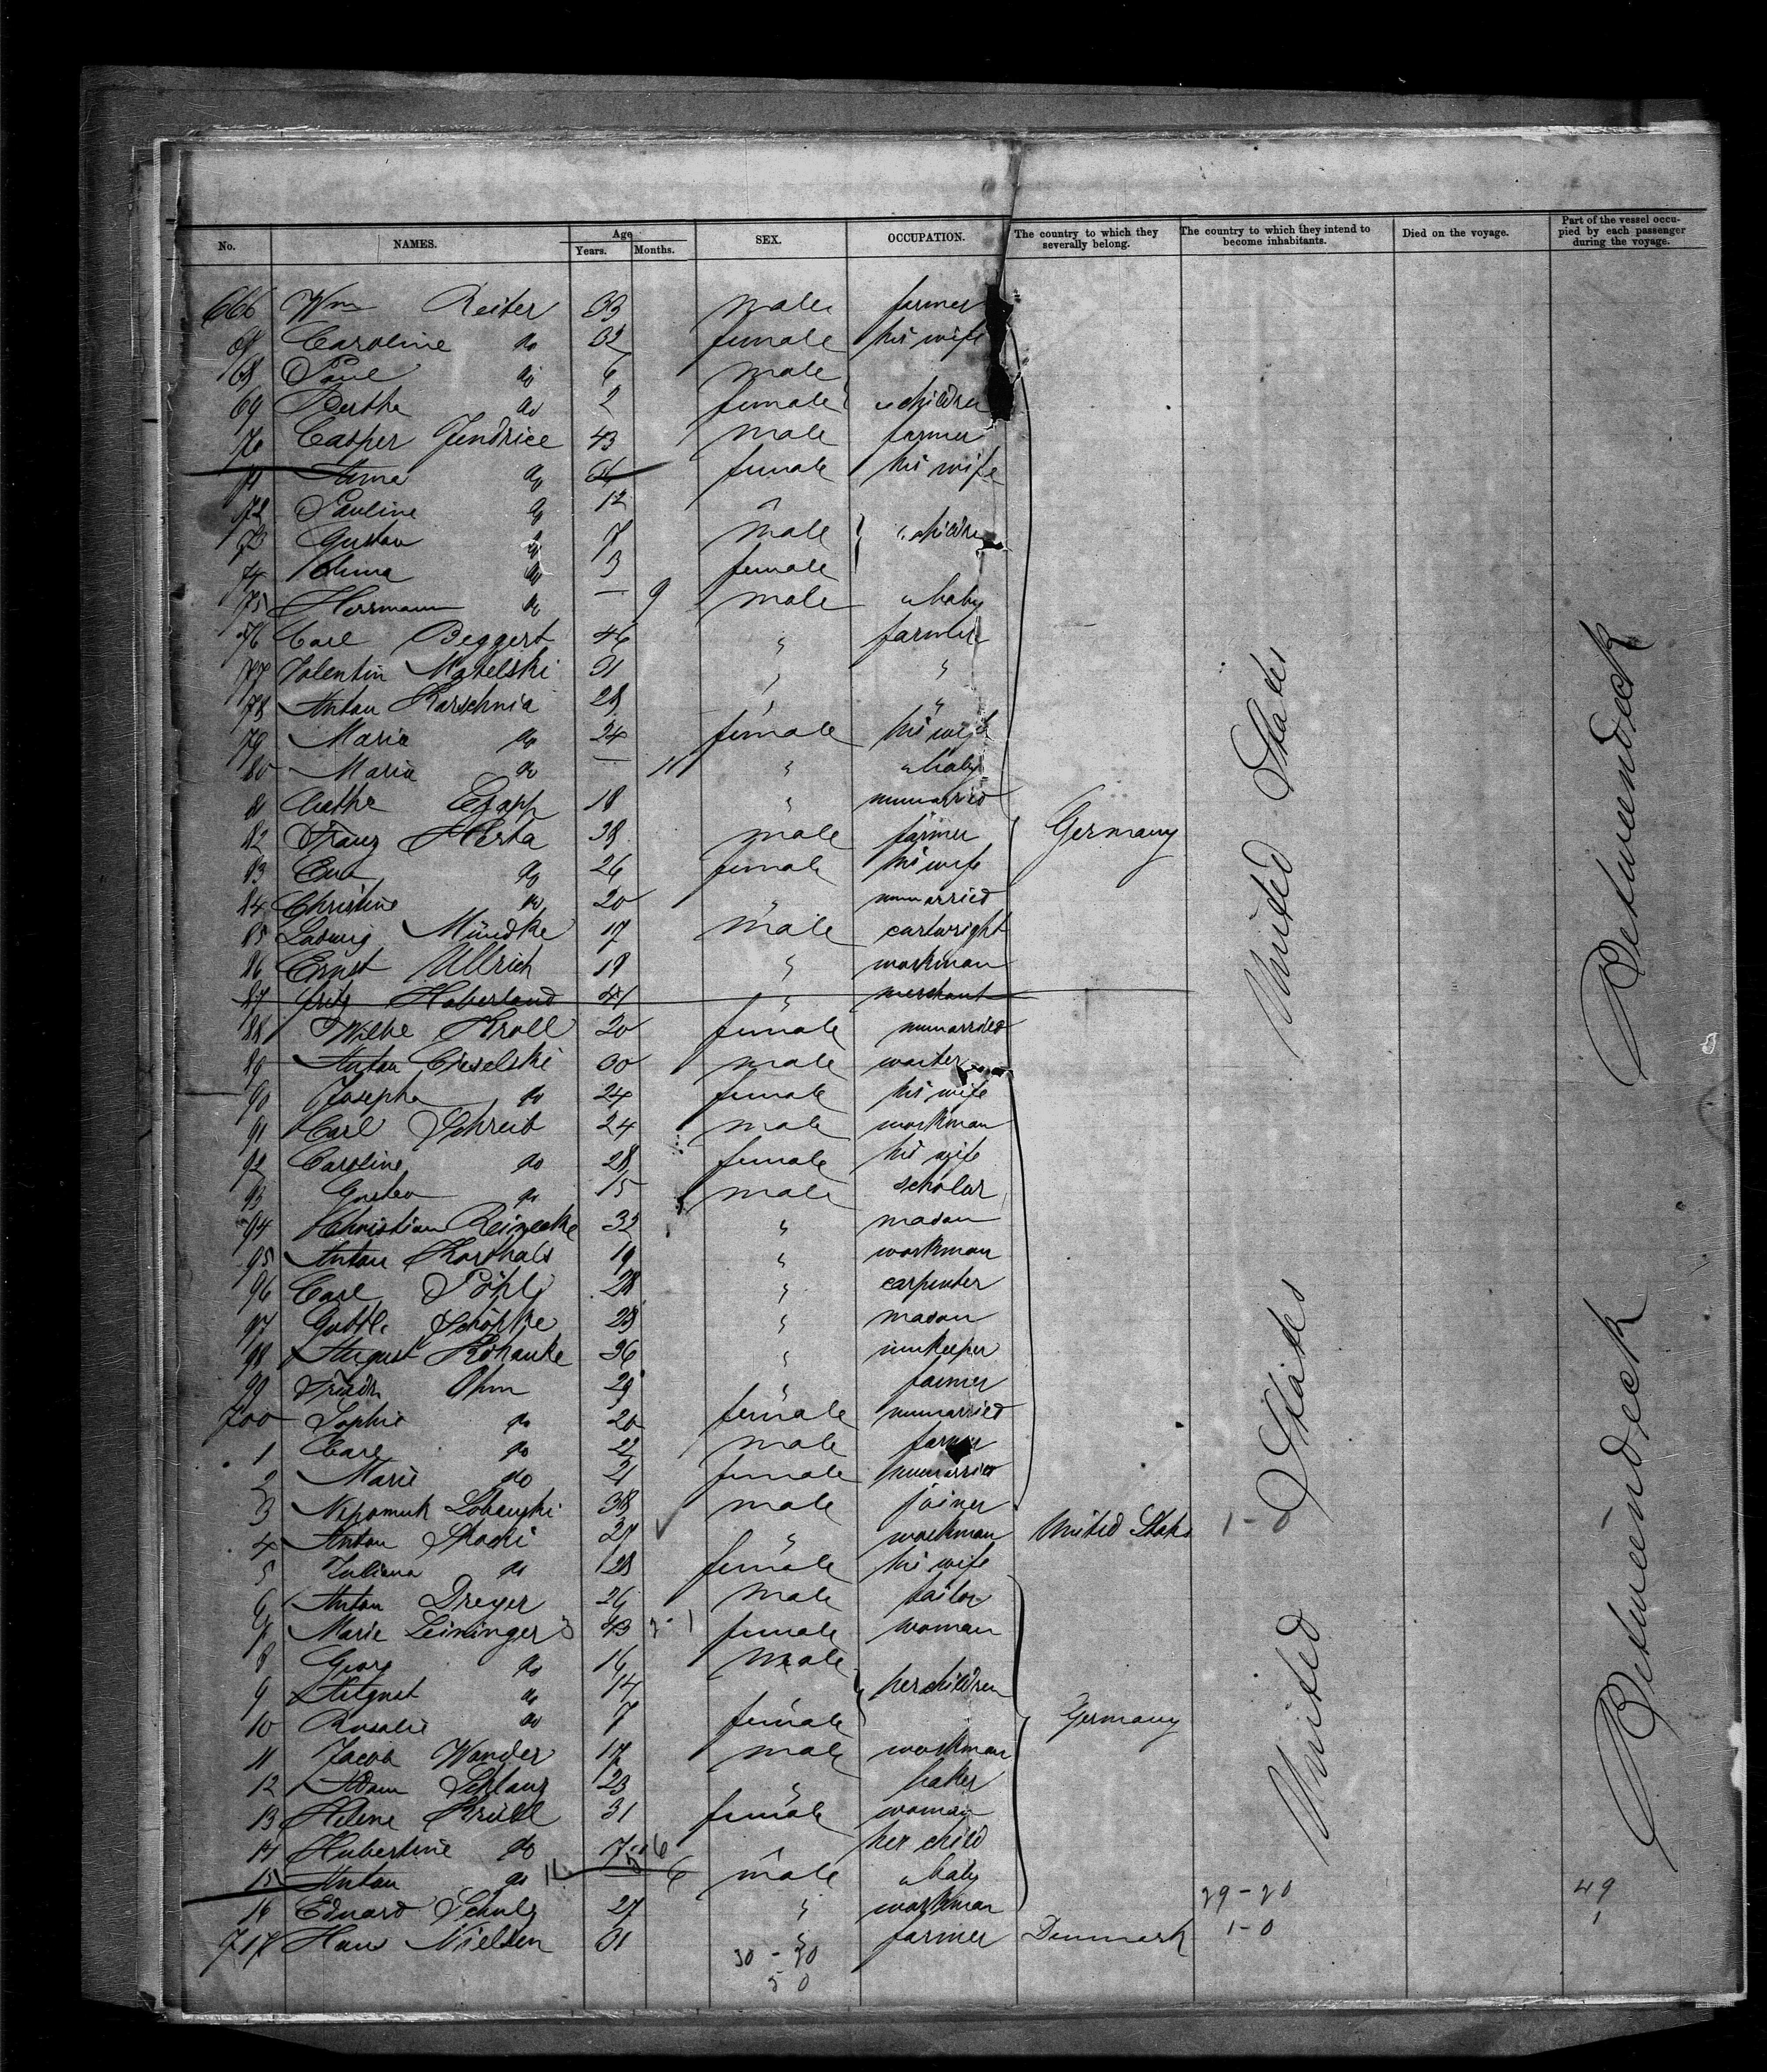 No. NAMES. Age Years. Months. SEX. OCCUPATION. The country to which they severally belong. The country to which they intend to become inhabitants. Died on the voyage. Part of the vessel occupied by each passenger during the voyage.
666 Wm Reiter 33 male farmer
67 Caroline do 32 female his wife
68 Paul do 6 male
69 Berthe do 2 female children
70 Casper Jendrice 43 male farmer
71 Anna do female his wife
72 Pauline do 12 "
73 Gustav do 7 male children
74 do 3 female
75 Herrmann do — 9 male baby
76 Carl Beggert 46 " farmer
77 Valentin 31 " "
78 Anton Karschnia 28 " "
79 Maria do 24 female his wife
80 Maria do — 11 " baby
81 18 " unmarried
82 Franz Hirta 38 male farmer Germany
83 Eva do 26 female his wife
84 Christine do 20 " unmarried
85 Ladwig Mündke 17 male cartwright
86 Ernst Ullrich 19 " workman
87 Fritz Haberland 41 " merchant
88 Wilhe Kroll 20 female unmarried
89 Anton Cieselski 30 male waiter
90 Josepha do 24 female his wife
91 Carl Schreib 24 male workman
92 Caroline do 28 female his wife
93 Gustav do 15 male scholar
94 Christian Reinecke 32 " mason
95 Anton 19 " workman
96 Carl Pöhl 28 " carpenter
97 Gottl. Schöpke 28 " mason
98 August Kohanke 36 " innkeeper
99 Friedr Ohm 29 " farmer
700 Sophie do 20 female unmarried
1 Carl do 22 male farmer
2 Marie do 21 female unmarried
3 Nepomuk 38 male joiner
4 Anton 27 " workman United States 1-0
5 Juliana do 28 female his wife
6 Anton Dreyer 26 male tailor
7 Marie Leininger 43 female woman
8 Georg do 16 male
9 August do 14 " her children
10 Rosalie do 7 female Germany
11 Jacob Wander 17 male workman
12 Adam Schlanz 23 " baker
13 Helene Krull 31 female woman
14 Hubertine do 7 6 " her child
15 Anton do — 6 male baby
16 Eduard Schulz 27 " workman 29-20 49
717 Hans Nielsen 31 " farmer Denmark 1-0 1
30-20
50
United States
United States
Betweendeck
Betweendeck